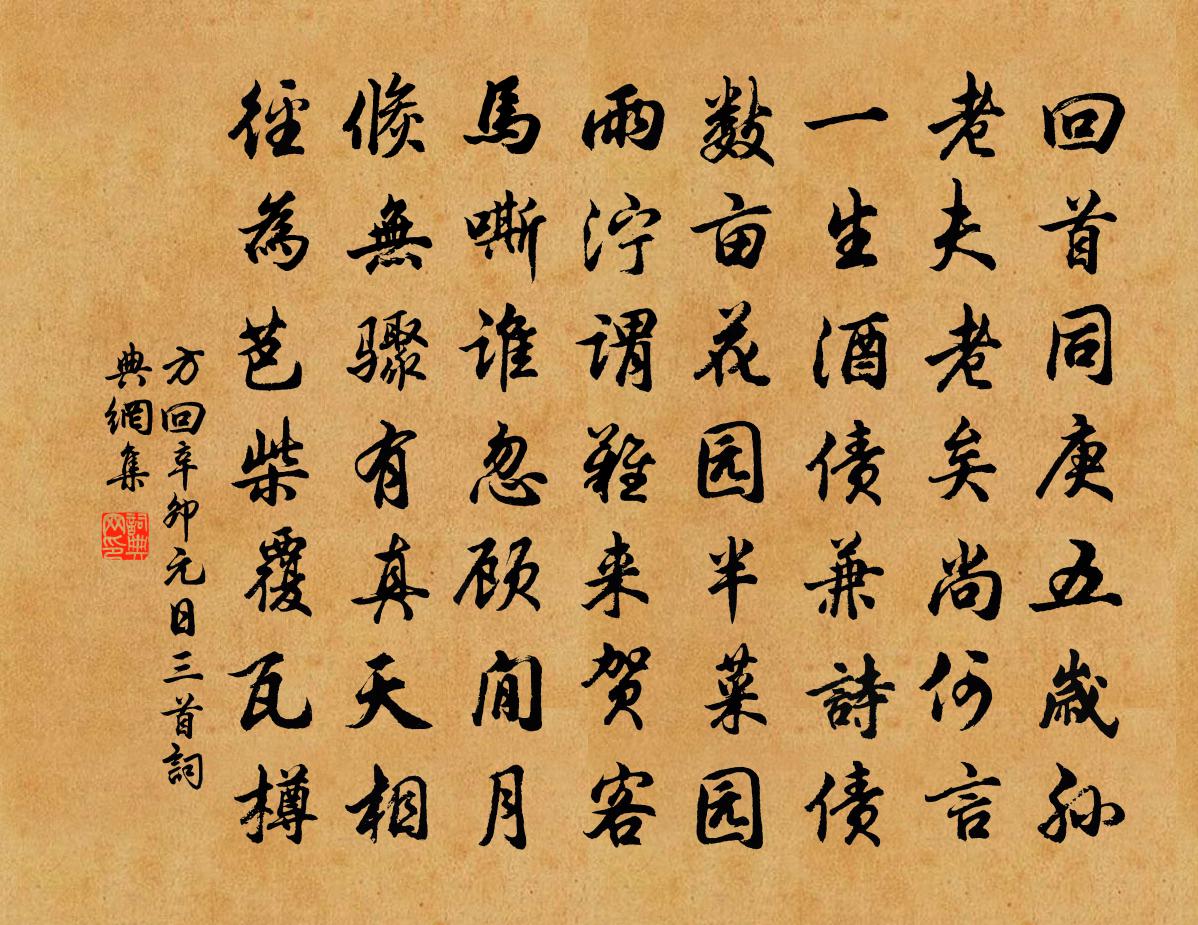 回首同庚五歲孙
老夫老矣尚何言
一生酒债兼詩债
数亩花园半菜园
雨泞谓難来贺客
馬嘶谁忽顾閒月
倏無骤有真天相
径為芭柴覆瓦樽
方回辛卯元日三首詞
典網集
詞典網印